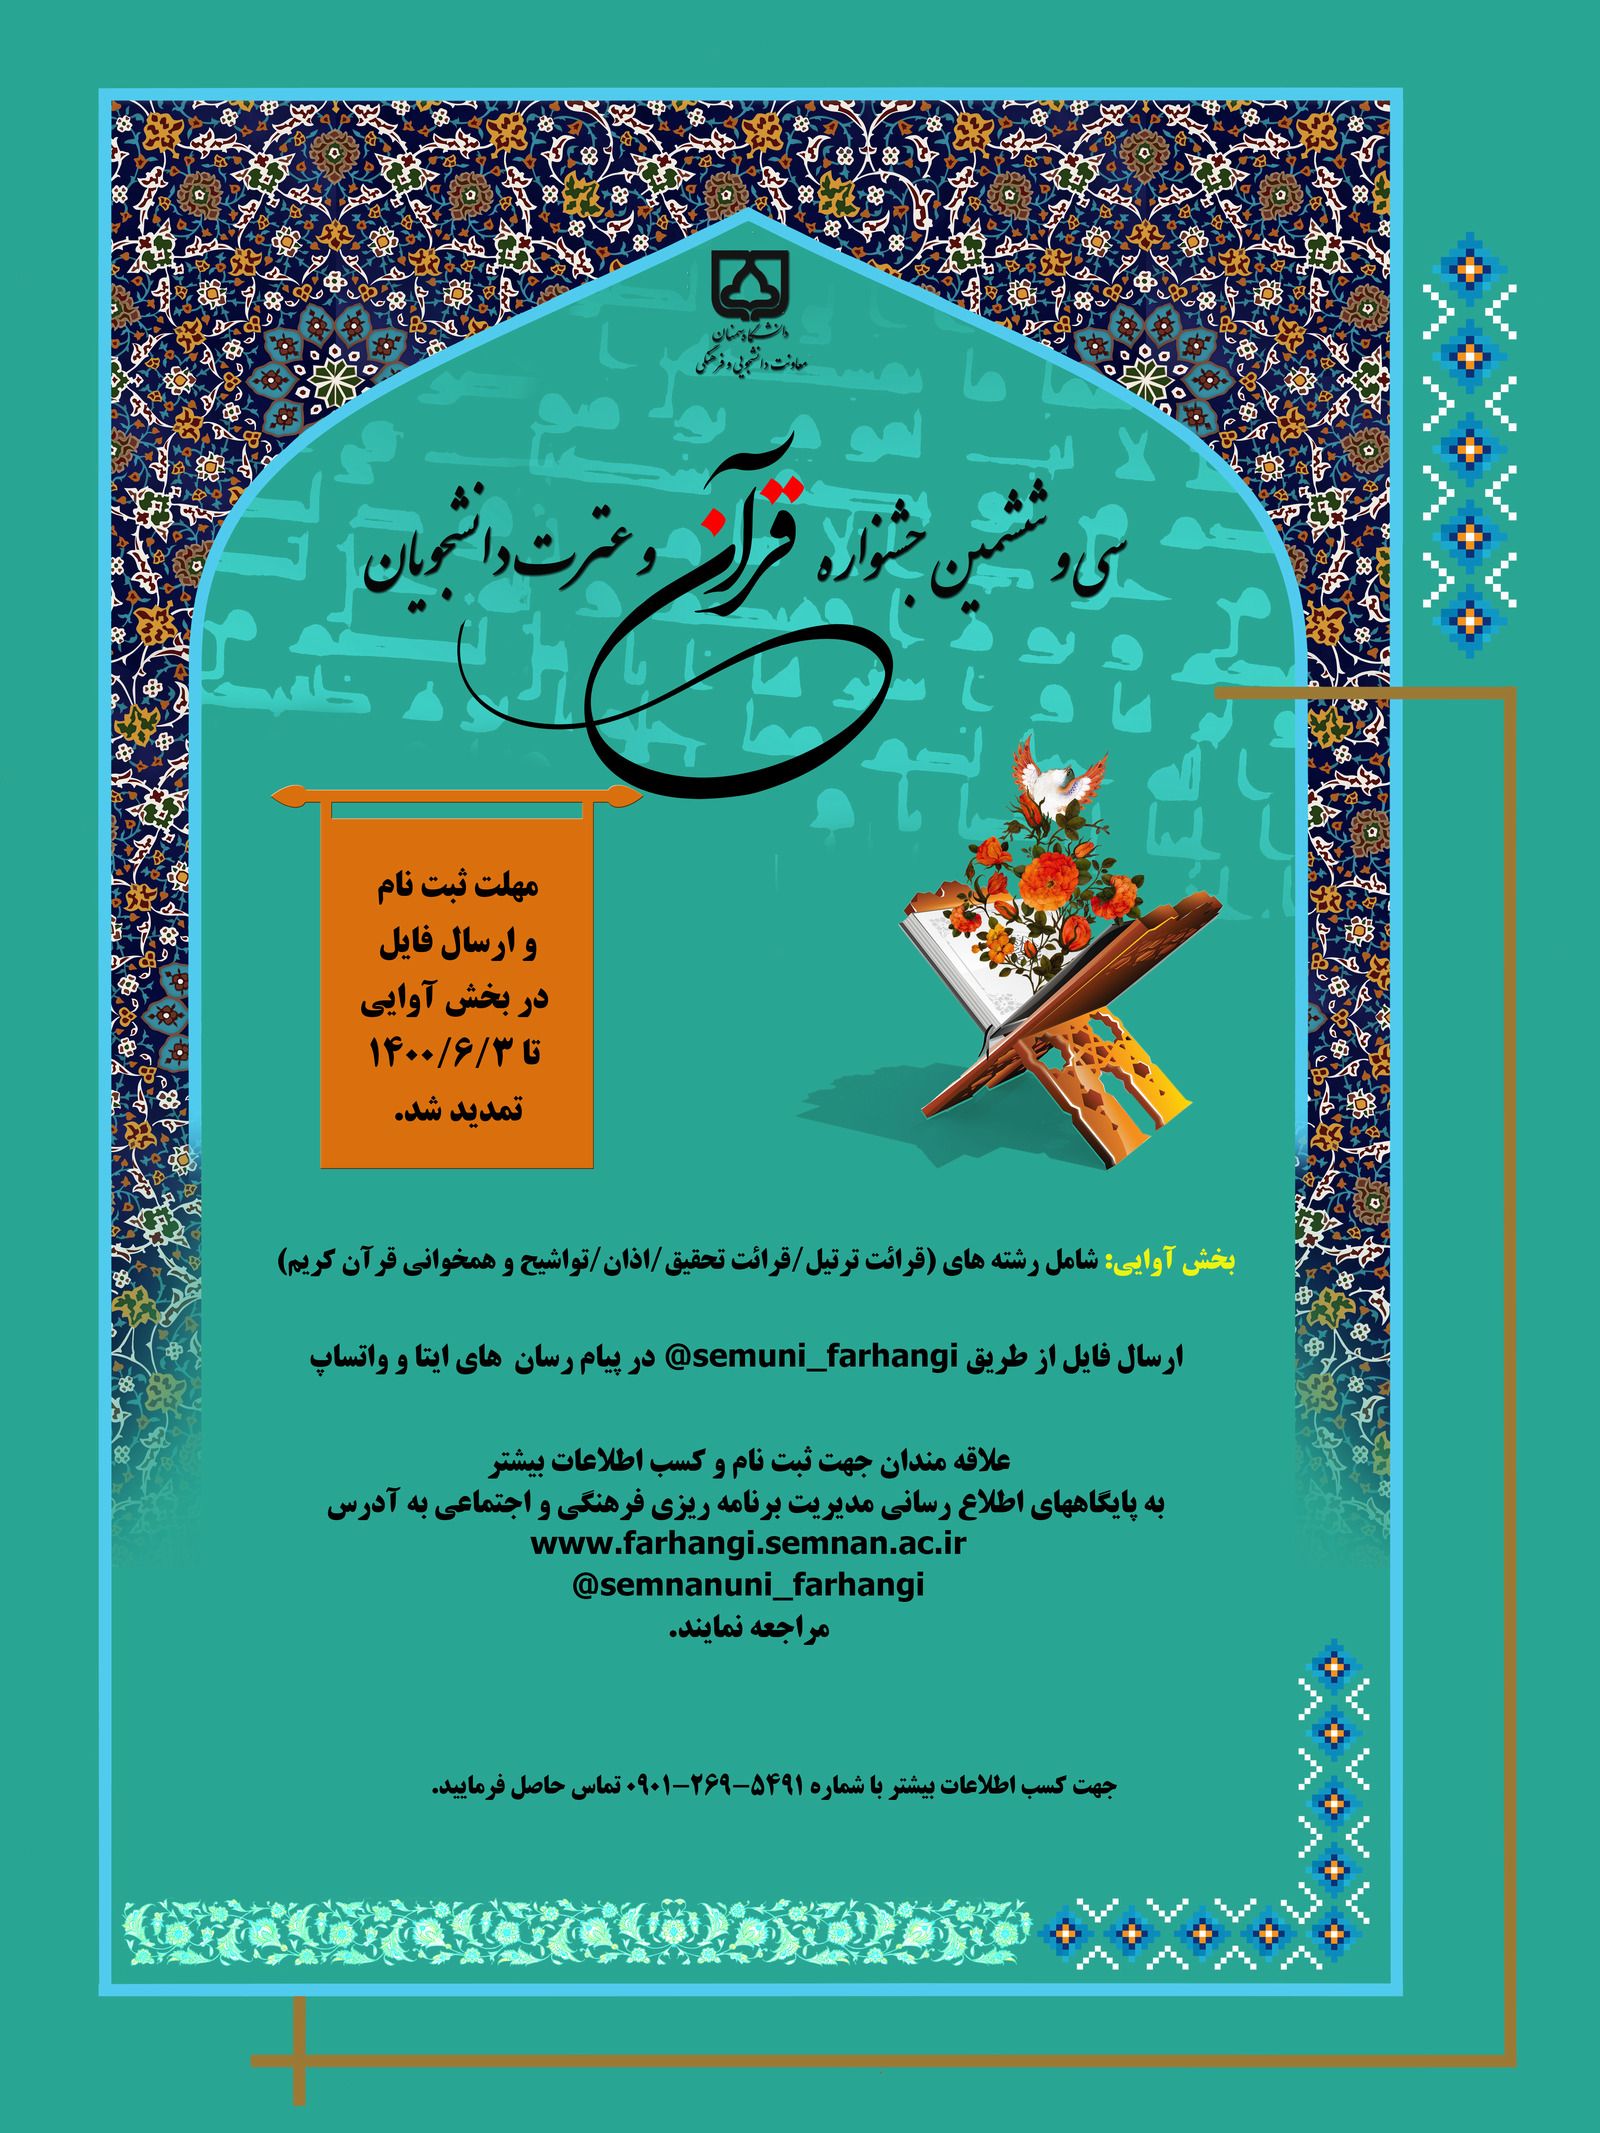 دانشگاه سمنان
معاونت دانشجویی و فرهنگی
سی و ششمین جشنواره قرآن و عترت دانشجویان
مهلت ثبت نام
و ارسال فایل
در بخش آوایی
تا ۱۴۰۰/۶/۳
تمدید شد.
بخش آوایی: شامل رشته های (قرائت ترتیل/قرائت تحقیق/اذان/تواشیح و همخوانی قرآن کریم)
ارسال فایل از طریق @semuni_farhangi در پیام رسان های ایتا و واتساپ
علاقه مندان جهت ثبت نام و کسب اطلاعات بیشتر
به پایگاههای اطلاع رسانی مدیریت برنامه ریزی فرهنگی و اجتماعی به آدرس
www.farhangi.semnan.ac.ir
@semnanuni_farhangi
مراجعه نمایند.
جهت کسب اطلاعات بیشتر با شماره ۵۴۹۱-۲۶۹-۰۹۰۱ تماس حاصل فرمایید.